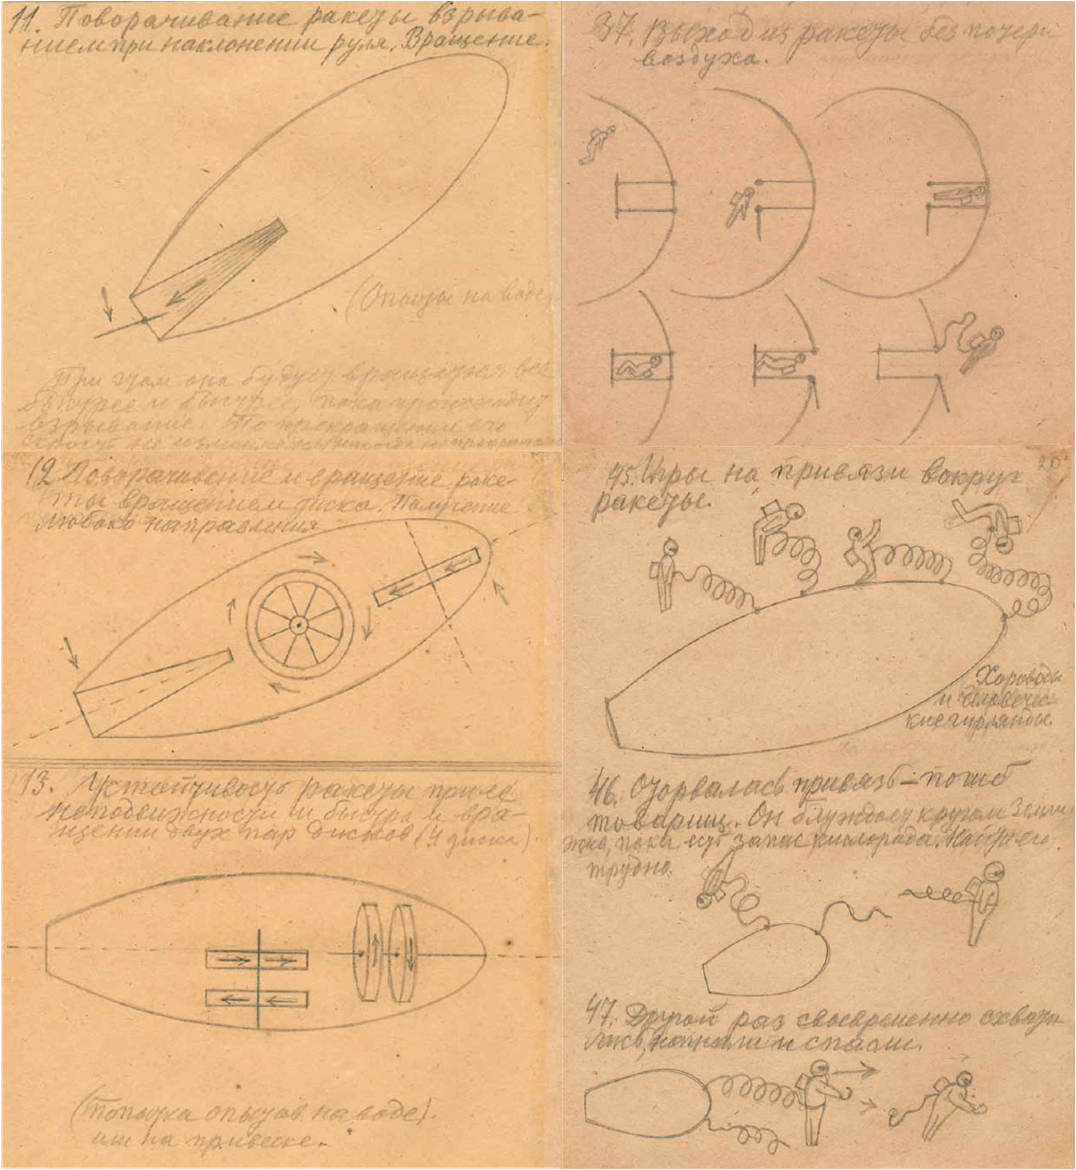 11. Поворачивание ракеты взрыва-
нием при наклонении руля. Вращение.
(Опыты на воде)
При этом она будут вращаться все
быстрее и быстрее, пока происходит
взрывание. По прекращении его
скорость не
12. Поворачивание и вращение раке-
ты вращением диска. Получение
любого направления
13. Устойчивость ракеты при ее
неподвижности и быстром вра-
щении двух пар дисков (4 диска).
(Попытка опытов на воде).
или на привеске.
37. Выход из ракеты без потери
воздуха.
26
45. Игры на привязи вокруг
ракеты.
Хороводы
и человечес-
кие гирлянды.
46. Оторвалась привязь – погиб
товарищ. Он блуждает кругом Земли
жив, пока есть запас кислорода. Найти его
трудно.
47. Другой раз своевременно схвати-
лись, нагнали и спасли.